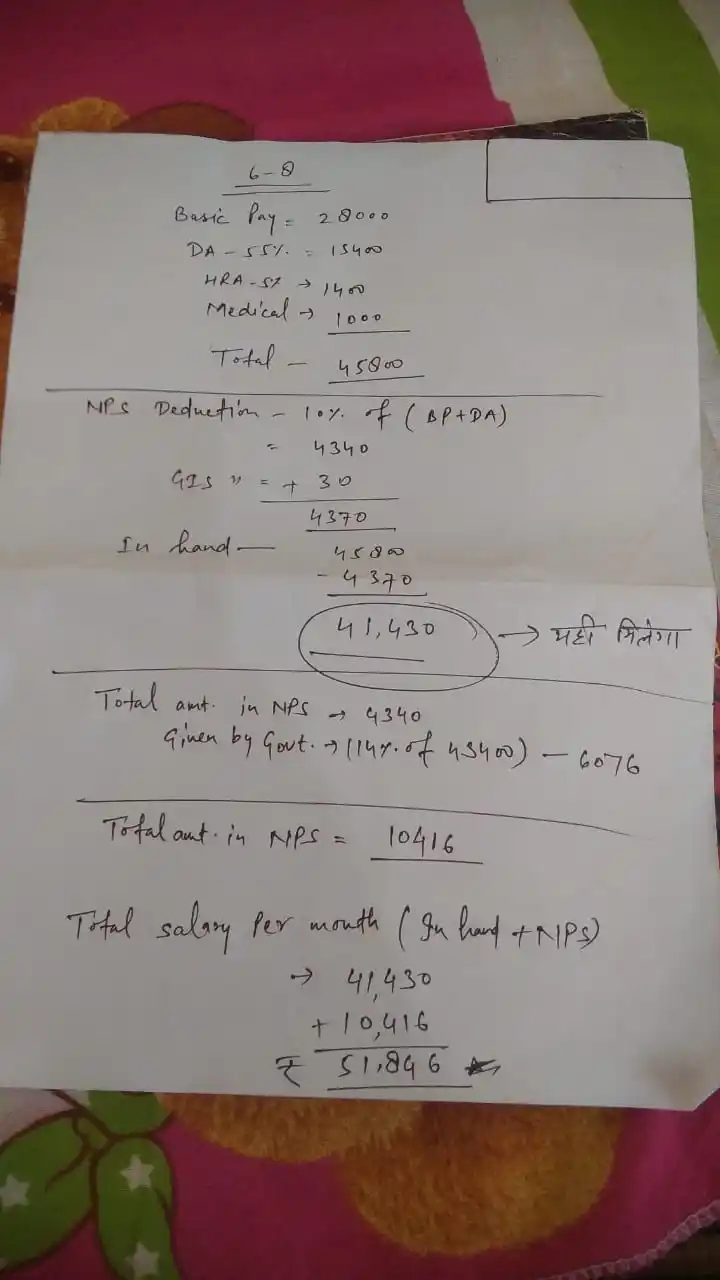 6-8
Basic Pay = 28000
DA - 55% = 15400
HRA - 5% → 1400
Medical → 1000
Total - 45800
NPS Deduction - 10% of (BP+DA)
= 4340
GIS " = + 30
4370
In hand — 45800
- 4370
41,430 → यही मिलेगा
Total amt. in NPS → 4340
Given by Govt. → (14% of 43400) - 6076
Total amt. in NPS = 10416
Total salary Per month (In hand + NPS)
→ 41,430
+ 10,416
₹ 51,846